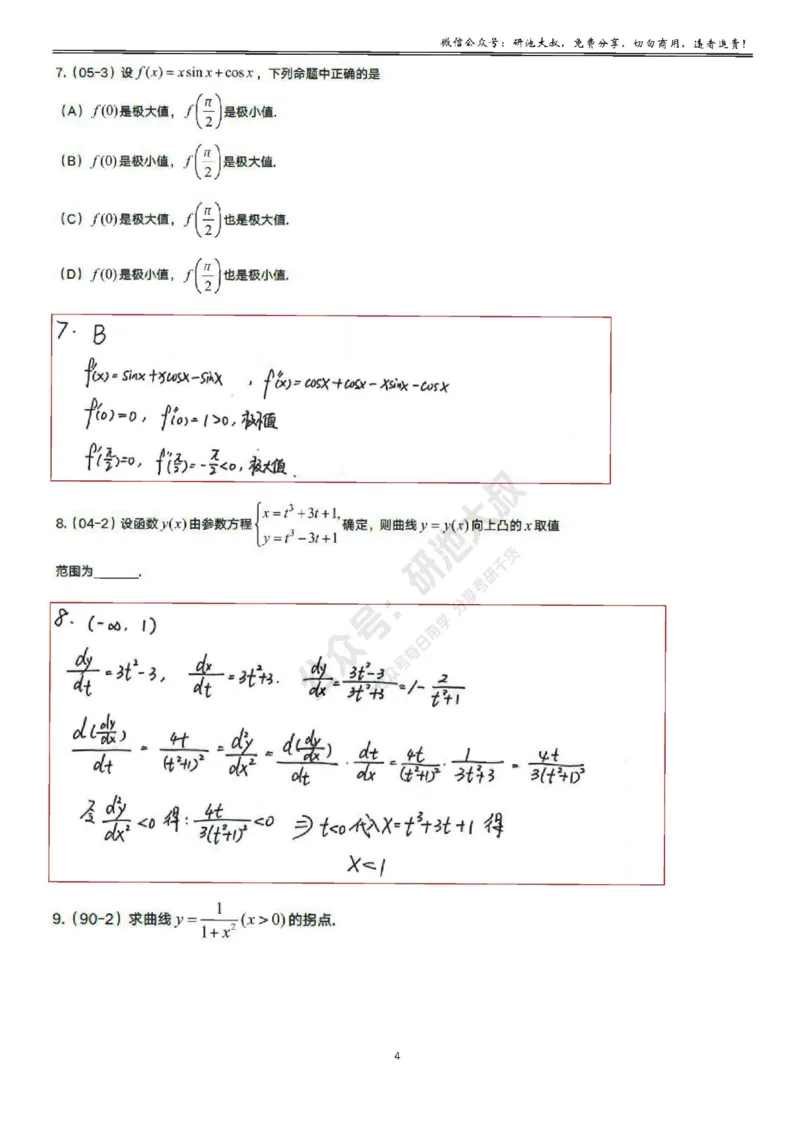 微信公众号：研池大叔，免费分享，切勿商用，违者追责！
7.（05-3）设 f(x) = x sin x + cos x，下列命题中正确的是
（A）f(0)是极大值，f(π/2)是极小值.
（B）f(0)是极小值，f(π/2)是极大值.
（C）f(0)是极大值，f(π/2)也是极大值.
（D）f(0)是极小值，f(π/2)也是极小值.
7. B
f'(x)= sinx + xcosx - sinx , f''(x)= cosx + cosx - xsinx - cosx
f'(0)=0, f''(0)=1>0, 极小值
f'(π/2)=0, f''(π/2)=-π/2<0, 极大值.
8.（04-2）设函数 y(x) 由参数方程 { x = t³ + 3t + 1, y = t³ - 3t + 1 确定，则曲线 y = y(x) 向上凸的 x 取值
范围为______.
8. (-∞, 1)
dy/dt = 3t²-3, dx/dt = 3t²+3. dy/dx = (3t²-3)/(3t²+3) = 1 - 2/(t²+1)
d(dy/dx)/dt = 4t/(t²+1)² = d²y/dx² = d(dy/dx)/dt · dt/dx = 4t/(t²+1)² · 1/(3t²+3) = 4t/3(t²+1)³
令 d²y/dx² <0 得: 4t/3(t²+1)³ <0 ⇒ t<0 代入 X=t³+3t+1 得
X<1
9.（90-2）求曲线 y = 1/(1+x²) (x > 0) 的拐点.
公众号：研池大叔
公众号每日带学 分享考研干货
4